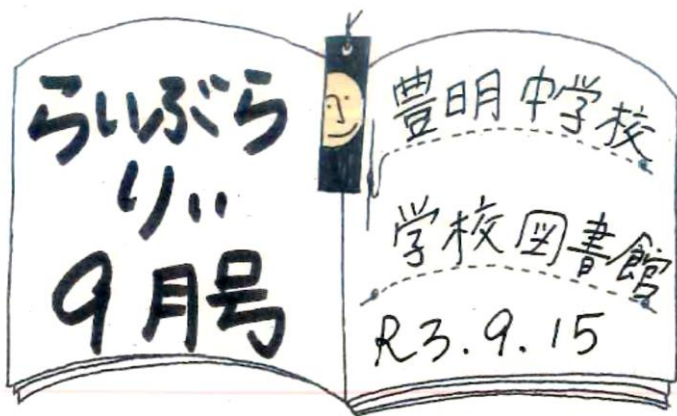 らいぶら
りぃ
9月号
豊明中学校
学校図書館
R3.9.15